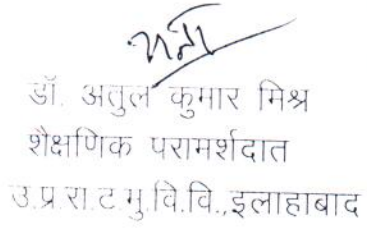 डॉ. अतुल कुमार मिश्र
शैक्षणिक परामर्शदात
उ.प्र.रा.ट.मु.वि.वि.,इलाहाबाद